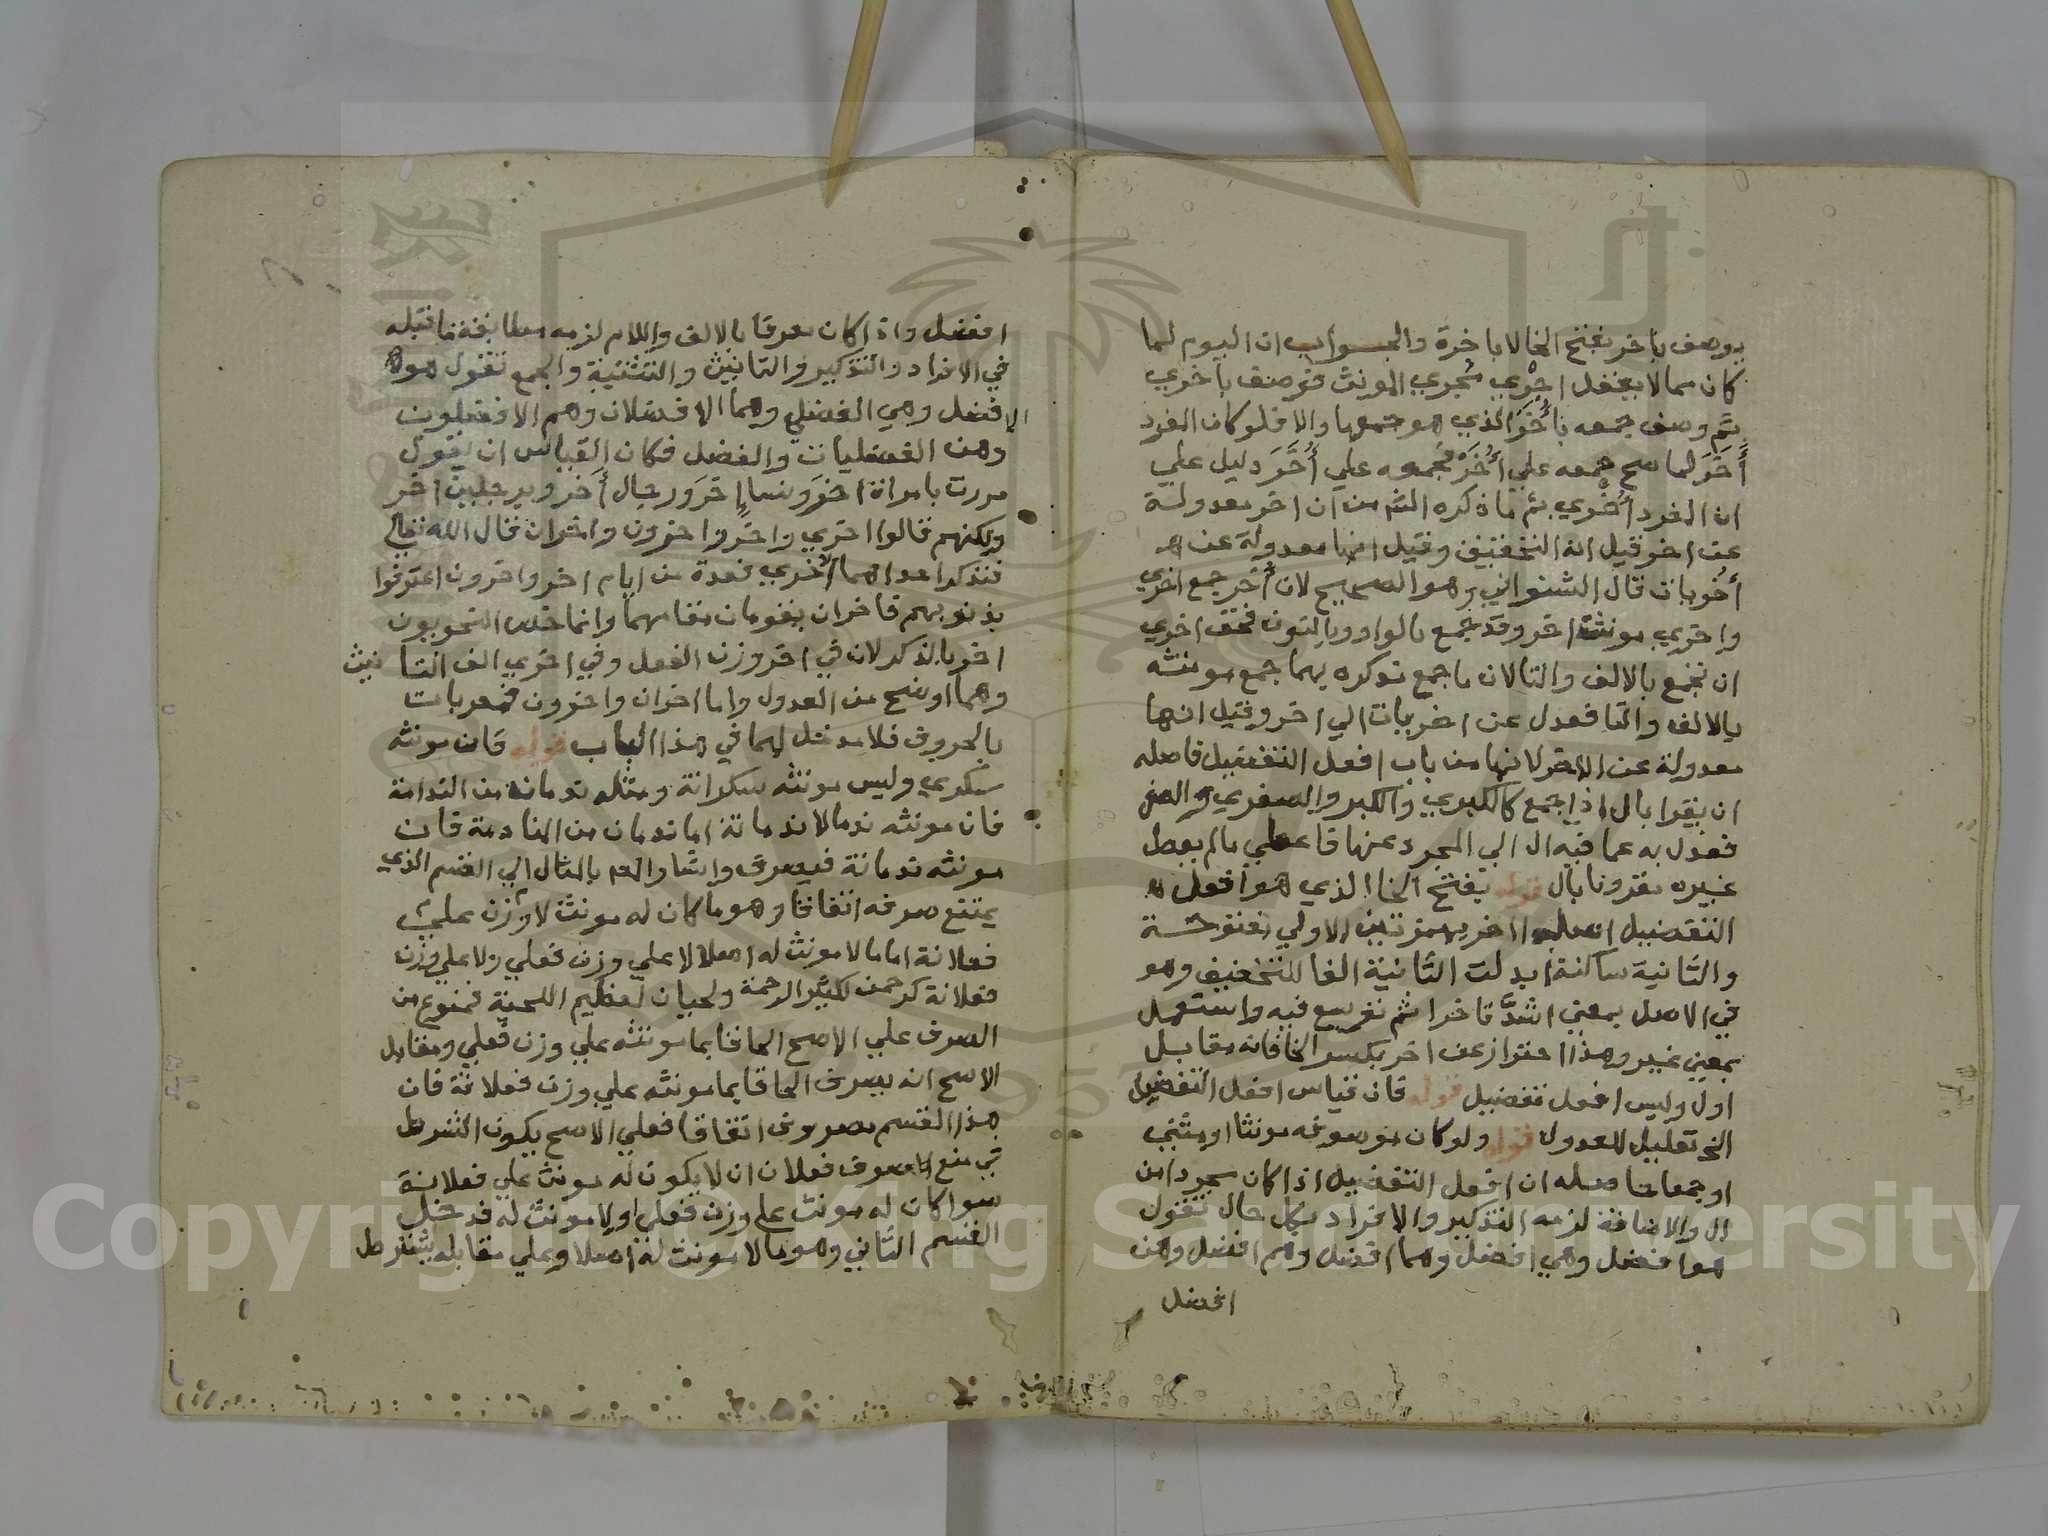 يوصف باخر بفتح الخا لا باخرة والجواب ان اليوم لما
كان مما لا يعقل اجري مجري المونث فوصف باخري
ثم وصف جمعه باخر الذي هو جمعها والا فلو كان المفرد
أخر لما صح جمعه علي أخر فجمعه علي أخر دليل علي
ان المفرد أخري ثم ما ذكره الش من ان اخر معدولة
عن اخر قيل انه التحقيق وقيل انها معدولة عن
أخريات قال الشنواني وهو الصحيح لان أخر جمع اخري
واخري مونث اخر وقد يجمع بالواو والنون فحق اخري
ان تجمع بالالف والتا لان ما جمع مذكره بهما جمع مونثه
بالالف والتا فعدل عن اخريات الي اخر وقيل انها
معدولة عن الاخر لانها من باب افعل التفضيل فاصله
ان يقرا بال اذا جمع كالكبري والكبر والصغري والصغر
فعدل به عما فيه ال الي المجرد عنها فاعطي ما لم يعط
غيره مقرونا بال قوله بفتح الخا الذي هو افعل
التفضيل اصله ااخر بهمزتين الاولي مفتوحة
والثانية ساكنة ابدلت الثانية الفا للتخفيف وهو
في الاصل بمعني اشد تاخرا ثم توسع فيه واستعمل
بمعني غير وهذا احتراز عن اخر بكسر الخا فانه مقابل
اول وليس افعل تفضيل قوله فان قياس افعل التفضيل
الخ تعليل للعدول قوله ولو كان موصوفه مونثا او مثني
او جمعا حاصله ان افعل التفضيل اذا كان مجردا من
ال والاضافة لزمه التذكير والافراد بكل حال تقول
هو افضل وهي افضل وهما افضل وهم افضل وهن
افضل
افضل واذا كان معرفا بالالف واللام لزمه مطابقة ما قبله
في الافراد والتذكير والتانيث والتثنية والجمع تقول هو
الافضل وهي الفضلي وهما الافضلان وهم الافضلون
وهن الفضليات والفضل فكان القياس ان يقول
مررت بامراة اخر ونسا اخر ورجال أخر وبرجلين اخر
ولكنهم قالوا اخري واخر واخرون واخران قال الله تعالي
فتذكر احداهما الاخري فعدة من ايام اخر واخرون اعترفوا
بذنوبهم فاخران يقومان مقامهما وانما خص النحويون
اخر بالذكر لان في اخر وزن الفعل وفي اخري الف التانيث
وهما اوضح من العدول واما اخران واخرون فمعربات
بالحروف فلا مدخل لهما في هذا الباب قوله فان مونثه
سكري وليس مونثه سكرانة ومثله ندمان من الندامة
فان مونثه ندما لا ندمانة اما ندمان من المنادمة فان
مونثه ندمانة فيصرف واشار المص بالمثال الي القسم الذي
يمتنع صرفه اتفاقا وهو ما كان له مونث لا وزن علي
فعلانة اما ما لا مونث له اصلا لا علي وزن فعلي ولا علي وزن
فعلانة كرحمن لكثير الرحمة ولحيان لعظيم اللحية فممنوع من
الصرف علي الاصح الحاقا بما مونثه علي وزن فعلي ومقابل
الاصح انه يصرف الحاقا بما مونثه علي وزن فعلانة فان
هذا القسم مصروف اتفاقا فعلي الاصح يكون الشرط
في منع صرف فعلان ان لا يكون له مونث علي فعلانة
سوا كان له مونث علي وزن فعلي او لا مونث له فدخل
القسم الثاني وهو ما لا مونث له اصلا وعلي مقابله يشترط
Copyright © King Saud University